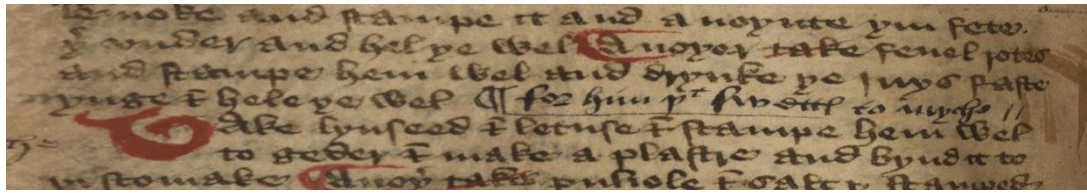 le noke and stampe it and a noynte yin fete
yͤ vnder and hel ye wel Anoyer take fenel rotes
and stampe hem wel and drynke ye juys faste
nynge & hele ye wel ¶ for him pᵗ swetel to myche
Take lynseed & letuse & stampe hem wel
to geder & make a plastre and bynd it to
yi stomake Anoyͬ take puliole & salt &